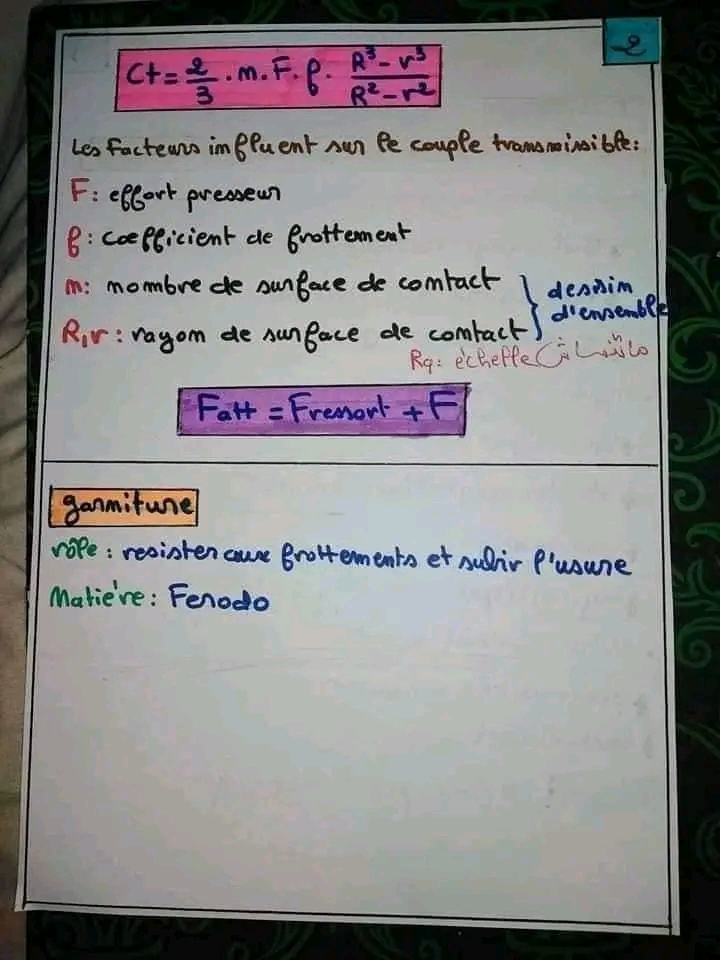 2
Ct = 2/3 . n. F. f. (R³ - r³)/(R² - r²)
Les facteurs influent sur le couple transmissible:
F: effort presseur
f: coefficient de frottement
n: nombre de surface de contact
R,r: rayon de surface de contact
dessin
d'ensemble
Rq: échelle ماتنساش
Fatt = Fressort + F
garniture
rôle: resister aux frottements et subir l'usure
Matière: Ferodo